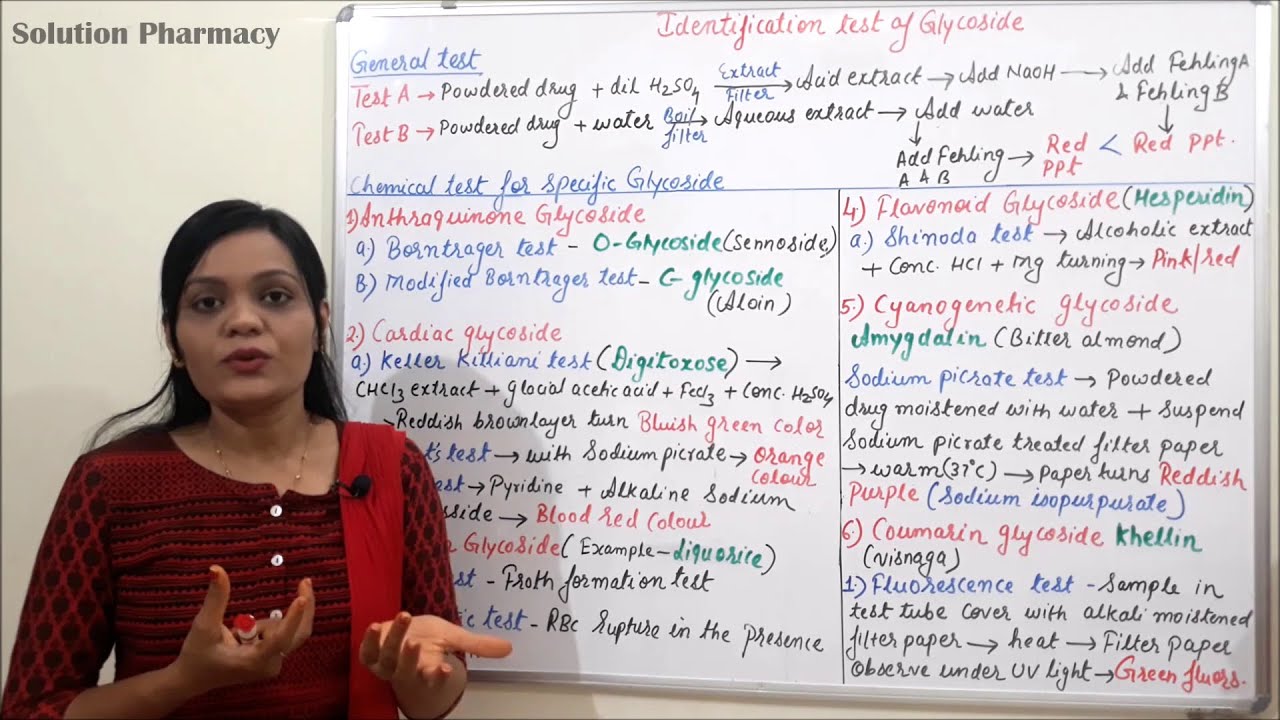 Solution Pharmacy
Identification test of Glycoside
General test
Test A → Powdered drug + dil H₂SO₄ Extract Filter → Acid extract → Add NaOH → Add Fehling A & Fehling B
→ Red ppt.
Test B → Powdered drug + water Boil filter → Aqueous extract → Add water
Add Fehling A & B → Red ppt <
Chemical test for specific Glycoside
1) Anthraquinone Glycoside
a.) Borntrager test - O-Glycoside (Sennoside)
B) Modified Borntrager test - C-glycoside
(Aloin)
2.) Cardiac glycoside
a.) Keller Killiani test (Digitoxose) →
CHCl₃ extract + glacial acetic acid + FeCl₃ + conc. H₂SO₄
Reddish brown layer turn Bluish green color
t's test → with Sodium picrate → orange
colour
st → Pyridine + Alkaline Sodium
sside → Blood red Colour
Glycoside (Example - Liquorice)
st - Froth formation test
ic test - RBC rupture in the presence
4) Flavonoid Glycoside (Hesperidin)
a.) Shinoda test → Alcoholic extract
+ Conc. HCl + Mg turning → Pink/red
5.) Cyanogenetic glycoside
Amygdalin (Bitter almond)
Sodium picrate test → Powdered
drug moistened with water + Suspend
Sodium picrate treated filter paper
→ warm (37°C) → Paper turns Reddish
Purple (Sodium isopurpurate)
6) Coumarin glycoside Khellin
(Visnaga)
1.) Fluorescence test - Sample in
test tube cover with alkali moistened
filter paper → heat → Filter Paper
Observe under UV light → Green fluors.